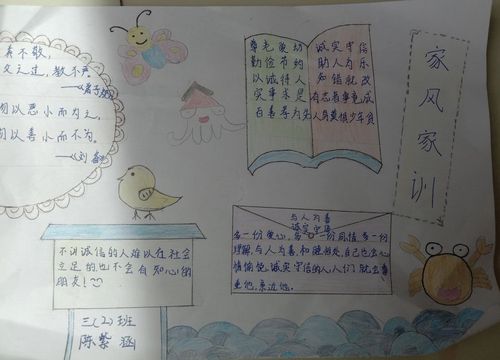 养不教,
父之过,教不严
勿以恶小而为之,
勿以善小而不为。
——《刘备》
尊老爱幼
勤俭节约
以诚待人
实事求是
百善孝为先
诚实守信
助人为乐
知错就改
有志者事竟成
人穷莫惧少年贫
家风家训
不讲诚信的人难以在社会
立足的也不会有知心的
朋友!
三(2)班
陈紫涵
与人为善
诚实守信
多一份爱心,多一份同情,多一份
理解,与人为善,和睦相处,自己也会心
情愉悦,诚实守信的人,人们就会尊
重他,亲近他。